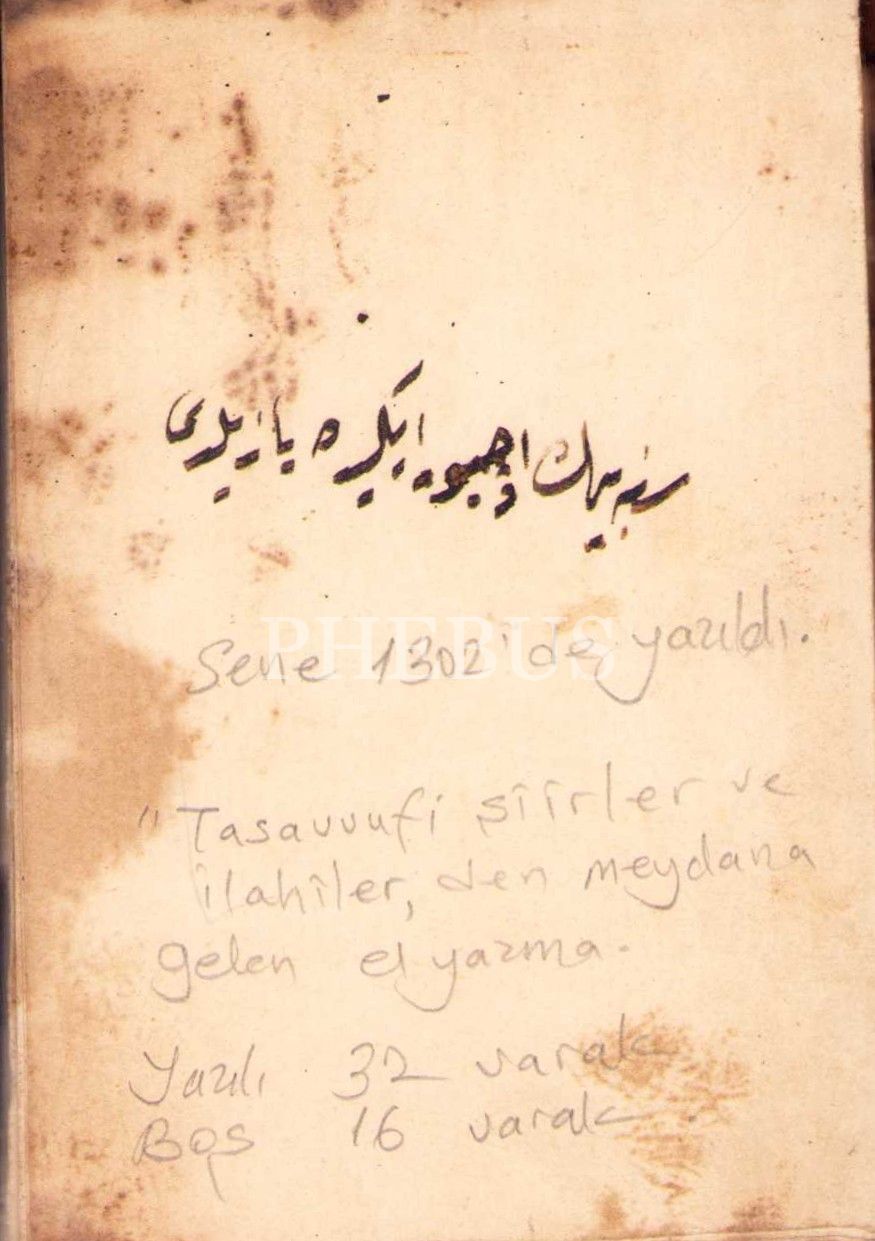 سنه بيك اوچيوز ايكيده يازيلدى
Sene 1302'de yazıldı.
PHEBUS
"Tasavvufi şiirler ve
ilahîler, den meydana
gelen el yazma.
Yazılı 32 varak
Boş 16 varak.